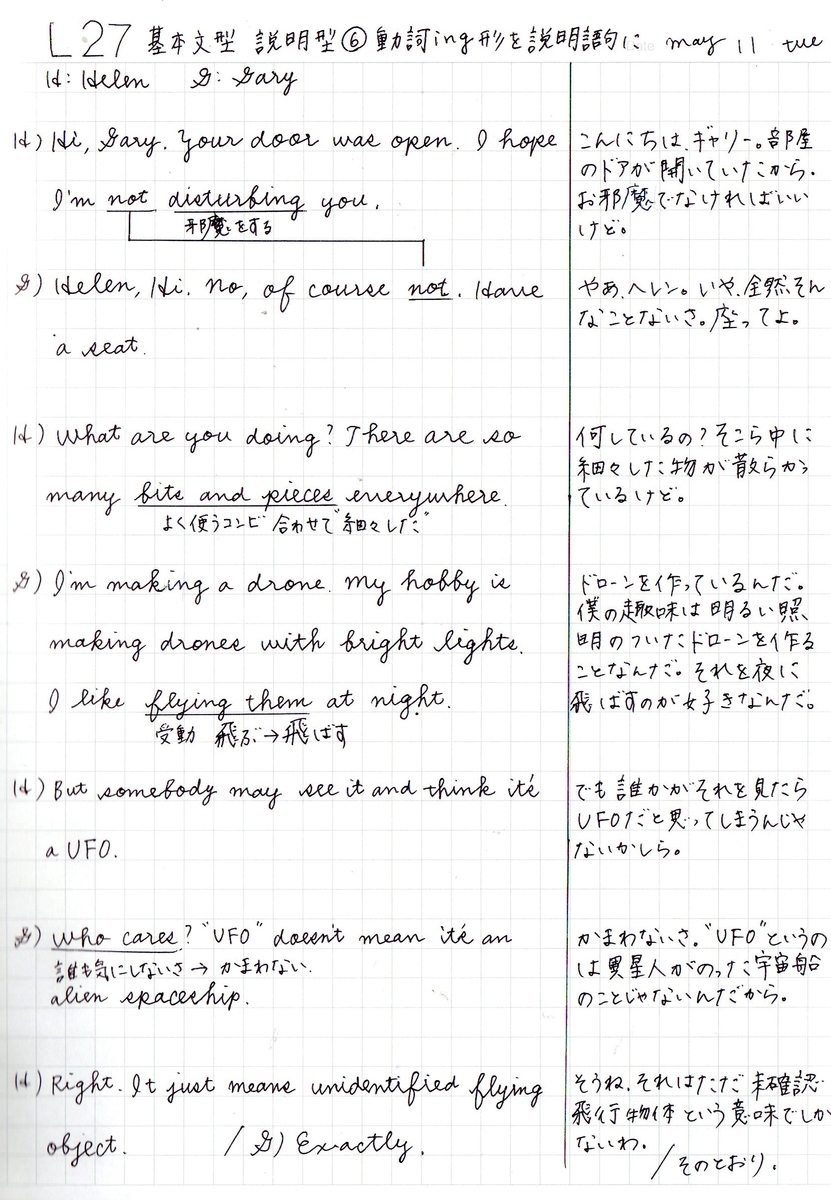 L27 基本文型 説明型⑥動詞ing形を説明語句に Date may 11 tue
H: Helen G: Gary
H) Hi, Gary. Your door was open. I hope
I'm not disturbing you.
邪魔をする
G) Helen, Hi. No, of course not. Have
a seat.
H) What are you doing? There are so
many bits and pieces everywhere.
よく使うコンビ 合わせて"細々した"
G) I'm making a drone. My hobby is
making drones with bright lights.
I like flying them at night.
受動 飛ぶ→飛ばす
H) But somebody may see it and think it's
a UFO.
G) Who cares? "UFO" doesn't mean it's an
誰も気にしないさ → かまわない.
alien spaceship.
H) Right. It just means unidentified flying
object. / G) Exactly.
こんにちは、ギャリー。部屋
のドアが開いていたから.
お邪魔でなければいい
けど。
やあ、ヘレン。いや、全然そん
なことないさ。座ってよ。
何しているの?そこら中に
細々した物が散らかっ
ているけど。
ドローンを作っているんだ。
僕の趣味は明るい照
明のついたドローンを作る
ことなんだ。それを夜に
飛ばすのが好きなんだ。
でも誰かがそれを見たら
UFOだと思ってしまうんじゃ
ないかしら。
かまわないさ。"UFO"というの
は異星人がのった宇宙船
のことじゃないんだから。
そうね、それはただ未確認
飛行物体という意味でしか
ないわ.
/そのとおり.